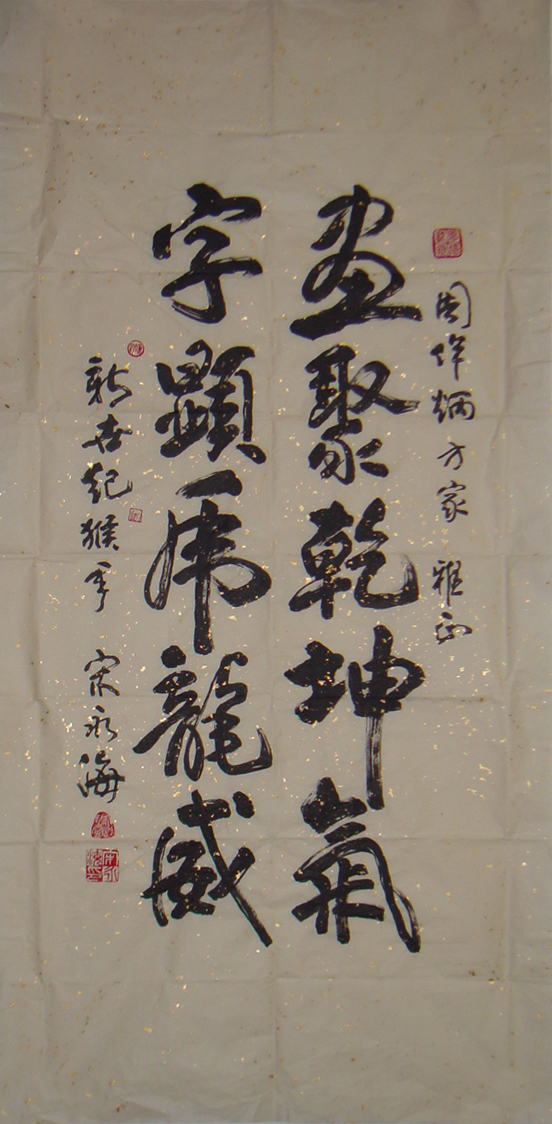 周伟炳方家 雅正
画聚乾坤氣
字顯虎龍威
新世纪猴年 宋永海